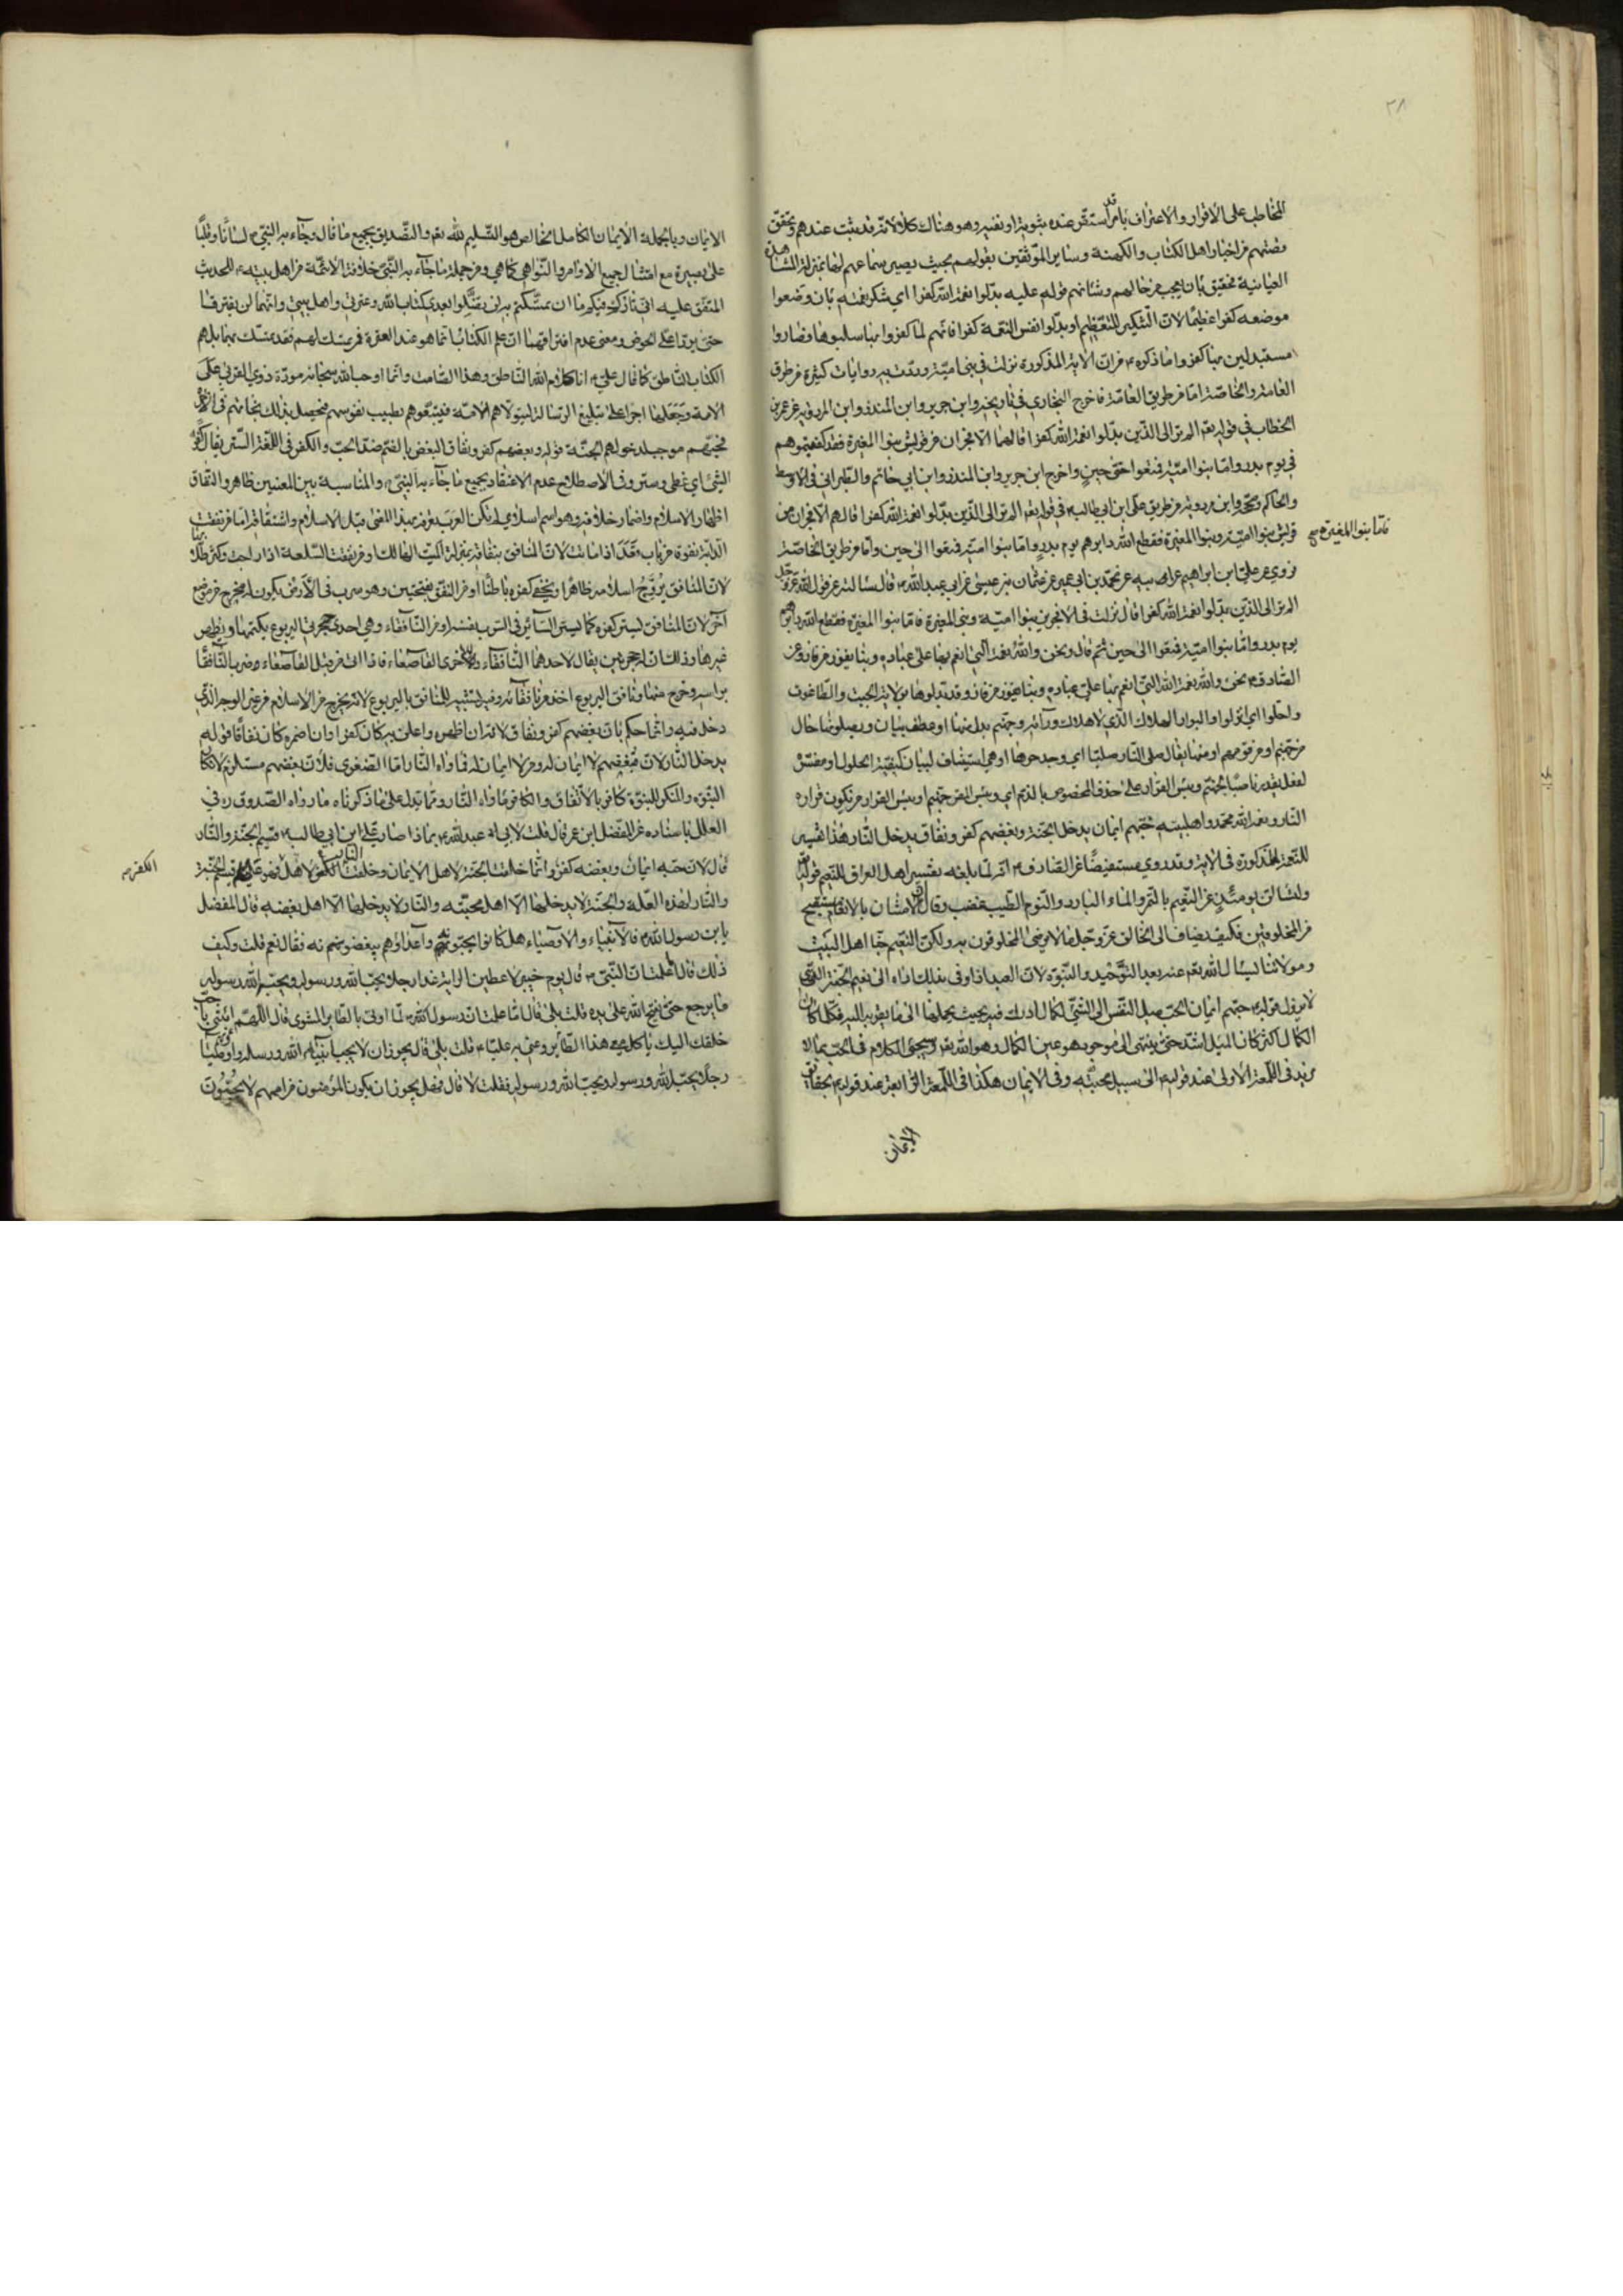 ٢٨
المخاطب على الاقرار والاعتراف بامر قد استقر عنده ثبوته او نفيه وهو هناك كذلك لانه قد ثبت عندهم وتحقق
قصتهم من اخبار اهل الكتاب والكهنة وساير الموثقين بقولهم بحيث يصير سماعهم لها بمنزلة المشاهدة
العيانية تحقيق بان يعجب من حالهم وشانهم قوله عليه بدلوا نعمة الله كفرا اي شكر نعمته بان وضعوا
موضعه كفرا عظيما لان التنكير للتعظيم او بدلوا نفس النعمة كفرا فانهم لما كفروا بها سلبوها فصاروا
مستبدلين بها كفرا وما ذكره من ان الاية المذكورة نزلت في بني امية وردت به روايات كثيرة من طرق
العامة والخاصة اما من طريق العامة فاخرج البخاري في تاريخه وابن جرير وابن المنذر وابن المردويه عن عمر بن
الخطاب في قوله تعم الم تر الى الذين بدلوا نعمة الله كفرا قال هما الافجران من قريش بنوا المغيرة فقد كفيتموهم
في يوم بدر واما بنوا امية فمتعوا حتى حين واخرج ابن جرير وابن المنذر وابن ابي حاتم والطبراني في الاوسط
والحاكم وصححه وابن مردويه من طريق علي ابن ابي طالب في قوله تعم الم تر الى الذين بدلوا نعمة الله كفرا قال هم الافجران من
قريش بنوا امية وبنوا المغيرة فقطع الله دابرهم يوم بدر واما بنوا امية فمتعوا الى حين واما من طريق الخاصة
فاما بنوا المغيرة صح
فروي عن علي ابن ابراهيم عن ابيه عن محمد بن ابي عمير عن عثمان بن عيسى عن ابي عبد الله قال سالته عن قول الله عز وجل
الم تر الى الذين بدلوا نعمة الله كفرا قال نزلت في الافجرين بنوا امية وبني المغيرة فاما بنوا المغيرة فقطع الله دابرهم
يوم بدر واما بنوا امية فمتعوا الى حين ثم قال ونحن والله نعمة الله التي انعم بها على عباده وبنا يفوز من فاز وعن
الصادق نحن والله نعمة الله التي انعم بها على عباده وبنا يفوز من فاز وقد بدلوها بولاية الجبت والطاغوت
واحلوا اي انزلوا والبوار الهلاك الذي لا هلاك ورائه وجهنم بدل منها او عطف بيان ويصلونها حال
من جهنم او من قومهم او منهما يقال صلى النار صليا اي وجد حرها او هي استيناف لبيان كيفية الحلول او مفسر
لفعل يقدر ناصبا لجهنم وبئس القرار على حذف المخصوص بالذم اي وبئس المقر جهنم او بئس القرار من تكون قراره
النار ونعمة الله محمد واهلبيته حبهم ايمان يدخل الجنة وبغضهم كفر ونفاق يدخل النار هذا تفسير
للنعمة المذكورة في الاية وقد روي مستفيضا عن الصادق انه لما بلغه تفسير اهل العراق للنعيم في قوله
ولتسالن يومئذ عن النعيم بالتمر والماء البارد والنوم الطيب غضب وقال ان الامتنان بالانعام مستقبح
من المخلوقين فكيف يضاف الى الخالق عز وجل ما لا يرضى المخلوقون به ولكن النعيم حبنا اهل البيت
وموالاتنا يسال الله تعم عنه بعد التوحيد والنبوة لان العبد اذا وفى بذلك اداه الى نعيم الجنة الذي
لا يزول قوله حبهم ايمان الحب ميل النفس الى الشئ لكمال ادرك فيه بحيث يحملها الى ما يقربه اليه فكلما كان
الكمال اكثر كان الميل اشد حتى ينتهى الى موجود هو عين الكمال وهو الله تعم وسيجئ الكلام في الحب بما لا
مزيد في اللمعة الاولى عند قوله الى سبيل محبته وفي الايمان هكذا في اللمعة الرابعة عند قوله بحقايق
الايمان
الايمان وبالجملة الايمان الكامل الخالص هو التسليم لله تعم والتصديق بجميع ما قال وجاء به النبي لسانا وقلبا
على بصيرة مع امتثال جميع الاوامر والنواهي كما هي ومن جملة ما جاء به النبي خلافة الائمة من اهل بيته للحديث
المتفق عليه اني تارك فيكم ما ان تمسكتم به لن تضلوا بعدي كتاب الله وعترتي واهل بيتي وانهما لن يفترقا
حتى يردا علي الحوض ومعنى عدم افتراقهما ان علم الكتاب انما هو عند العترة فمن تمسك بهم فقد تمسك بهما بل هم
الكتاب الناطق كما قال علي انا كلام الله الناطق وهذا الصامت وانما اوجب الله سبحانه مودة ذوي القربى على
الامة وجعلها اجرا على تبليغ الرسالة ليتولاهم الامة فيتبعوهم بطيب نفوسهم فيحصل بذلك نجاتهم في الاخرة
فحبهم موجب لدخولهم الجنة قوله وبغضهم كفر ونفاق البغض بالضم ضد الحب والكفر في اللغة الستر يقال كفر
الشئ اي غطى وستر وفي الاصطلاح عدم الاعتقاد بجميع ما جاء به النبي والمناسبة بين المعنيين ظاهر والنفاق
اظهار الاسلام واضمار خلافه وهو اسم اسلامي لم تكن العرب تعرفه بهذا المعنى قبل الاسلام واشتقاقه اما من نفقت
الدابة نفوقا من باب قعد اذا ماتت لان المنافق بنفاقه بمنزلة الميت الهالك او من نفقت السلعة اذا راجت وكثر طلابها
لان المنافق يروج اسلامه ظاهرا ويخفي كفره باطنا او من النفق بفتحتين وهو سرب في الارض يكون له مخرج من موضع
آخر لان المنافق يستر كفره كما يستر السائر في السرب نفسه او من النافقاء وهي احدى حجرتي اليربوع يكتمها ويظهر
غيرها وذلك ان له حجرتين يقال لاحدهما النافقاء وللاخرى القاصعاء فاذا اتى من قبل القاصعاء ضرب النافقا
براسه وخرج منها ونافق اليربوع اخذ من نافقائه وفيه تشبيه للمنافق باليربوع لانه يخرج من الاسلام من غير الوجه الذي
دخل فيه وانما حكم بان بغضهم كفر ونفاق لانه ان اظهره واعلن به كان كفرا وان اضمره كان نفاقا قوله
يدخل النار لان مبغضهم لا ايمان له ومن لا ايمان له فماواه النار اما الصغرى فلان بغضهم مستلزم لانكار
النبوة والمنكر للنبوة كافر بالاتفاق والكافر ماواه النار ومما يدل على ما ذكرناه ما رواه الصدوق ره في
العلل باسناده عن المفضل ابن عمر قال قلت لابي عبد الله بما ذا صار علي ابن ابي طالب قسيم الجنة والنار
قال لان حبه ايمان وبغضه كفر وانما خلقت الجنة لاهل الايمان وخلقت النار لاهل الكفر فهو قسيم الجنة
الكفر
والنار لهذه العلة والجنة لا يدخلها الا اهل محبته والنار لا يدخلها الا اهل بغضه قال المفضل
يابن رسول الله فالانبياء والاوصياء هل كانوا يحبونه واعداؤهم يبغضونه فقال نعم قلت وكيف
ذلك قال اما علمت ان النبي قال يوم خيبر لاعطين الراية غدا رجلا يحب الله ورسوله ويحبه الله ورسوله
ما يرجع حتى يفتح الله على يده قلت بلى قال اما علمت ان رسول الله لما اوتي بالطاير المشوى قال اللهم ائتني باحب
خلقك اليك ياكل معي هذا الطائر وعنى به عليا قلت بلى قال يجوز ان لا يحب انبياء الله ورسله واوصيائهم
رجلا يحب الله ورسوله ويحبه الله ورسوله فقلت لا قال فهل يجوز ان يكون المؤمنون من اممهم لا يحبون